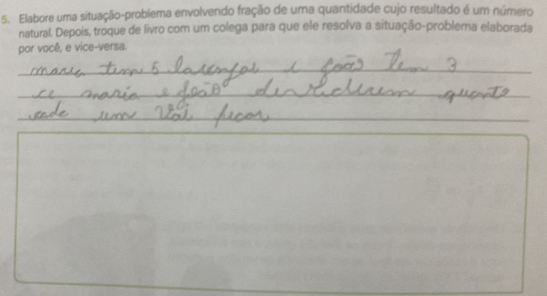 5. Elabore uma situação-problema envolvendo fração de uma quantidade cujo resultado é um número
natural. Depois, troque de livro com um colega para que ele resolva a situação-problema elaborada
por você, e vice-versa.
maria tem 5 laranjas e joão tem 3
ce maria e joão devidirem quanto
cade um vai ficar